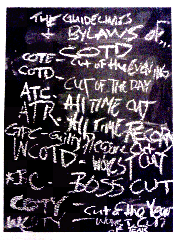 THE GUIDELINES
+ BYLAWS of...
COTD
COTE - Cut of the EVENING
COTD -
ATC - CUT OF THE DAY
ATR - All TIME CUT
All TIME RECORD
GPC - Guilty Pleasure Cut
WCOTD - WORST CUT
BC - BOSS CUT
COTY - Cut of the Year
WCOTY - WORST CUT
YEAR